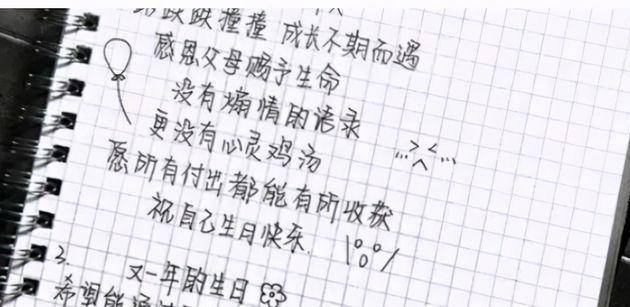 跌跌撞撞 成长不期而遇
感恩父母赐予生命
没有煽情的语录
更没有心灵鸡汤
愿所有付出都能有所收获
祝自己生日快乐
3.
又一年的生日
希望能